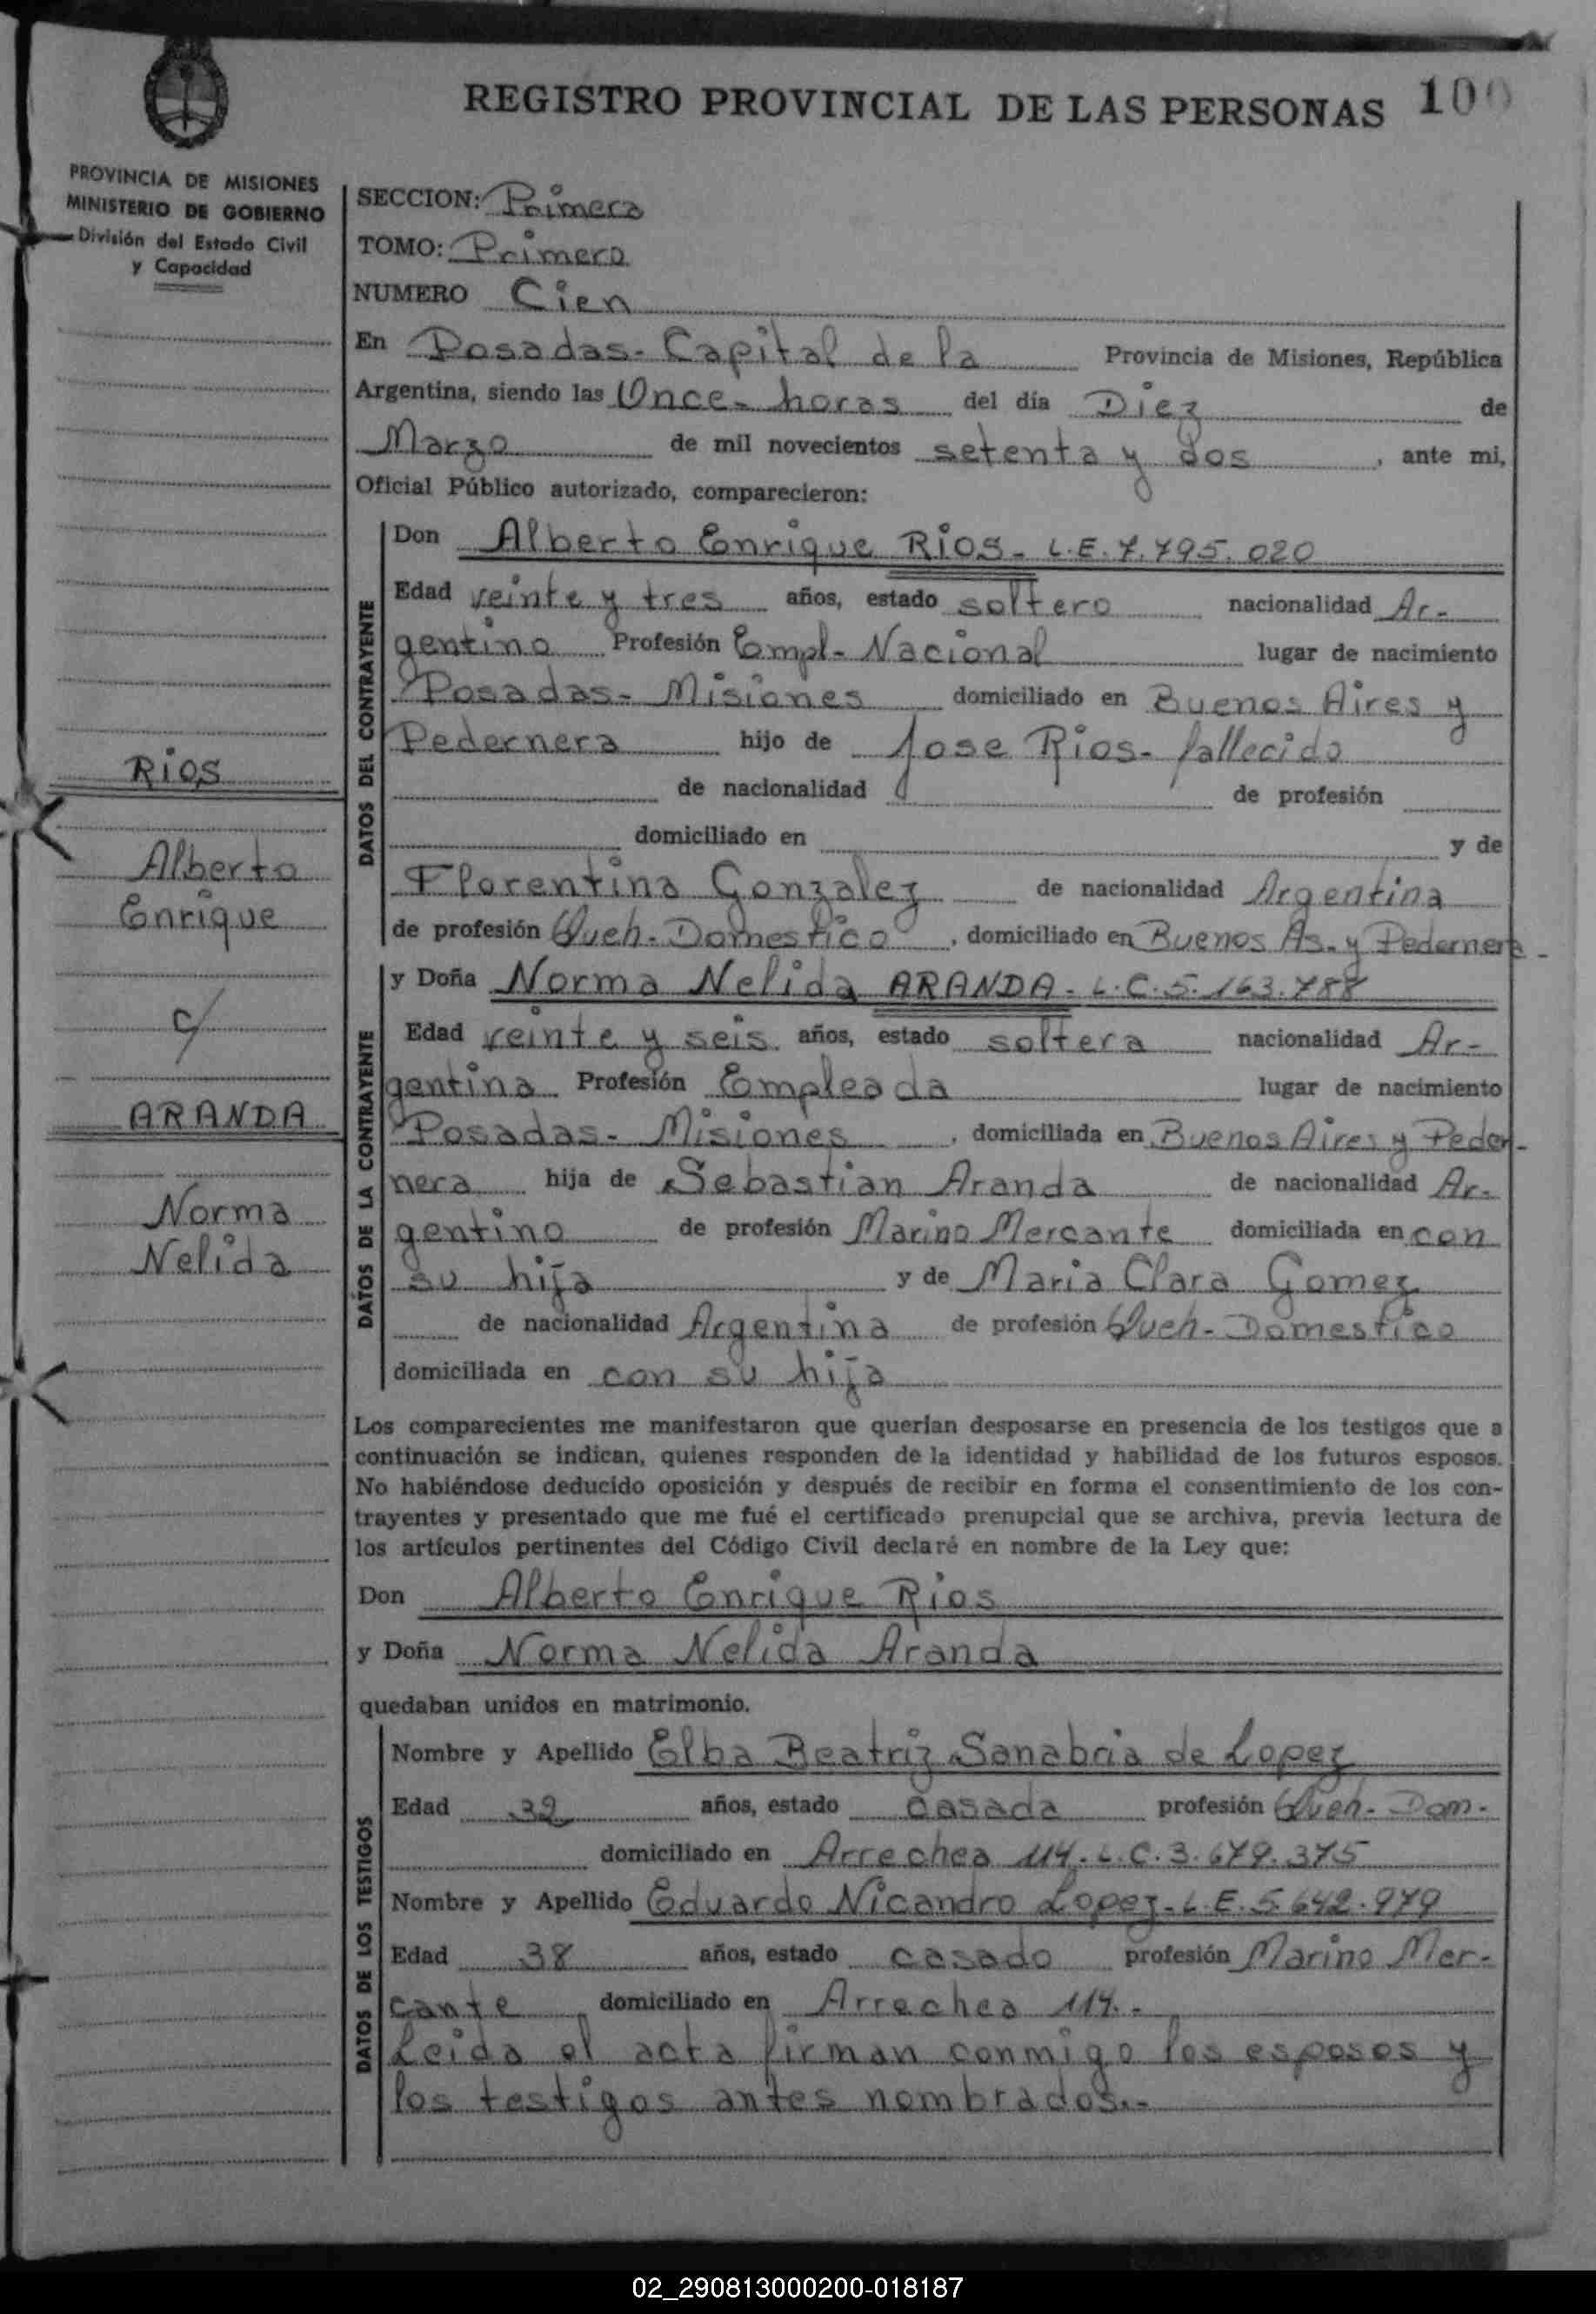 REGISTRO PROVINCIAL DE LAS PERSONAS 100
PROVINCIA DE MISIONES
MINISTERIO DE GOBIERNO
División del Estado Civil
y Capacidad
RIOS
Alberto
Enrique
c/
ARANDA
Norma
Nelida
SECCION: Primera
TOMO: Primero
NUMERO Cien
En Posadas- Capital de la Provincia de Misiones, República
Argentina, siendo las Once- horas del día Diez de
Marzo de mil novecientos setenta y dos, ante mi,
Oficial Público autorizado, comparecieron:
DATOS DEL CONTRAYENTE
Don Alberto Enrique RIOS- L.E.7.795.020
Edad veinte y tres años, estado soltero nacionalidad Ar-
gentino Profesión Empl- Nacional lugar de nacimiento
Posadas- Misiones domiciliado en Buenos Aires y
Pedernera hijo de Jose Rios- fallecido
de nacionalidad de profesión
domiciliado en y de
Florentina Gonzalez de nacionalidad Argentina
de profesión Queh-Domestico, domiciliado en Buenos As. y Pedernera-
DATOS DE LA CONTRAYENTE
y Doña Norma Nelida ARANDA- L.C.5.163.788
Edad veinte y seis años, estado soltera nacionalidad Ar-
gentina Profesión Empleada lugar de nacimiento
Posadas- Misiones, domiciliada en Buenos Aires y Peder-
nera hija de Sebastian Aranda de nacionalidad Ar-
gentino de profesión Marino Mercante domiciliada en con
su hija y de Maria Clara Gomez
de nacionalidad Argentina de profesión Queh-Domestico
domiciliada en con su hija
Los comparecientes me manifestaron que querían desposarse en presencia de los testigos que a
continuación se indican, quienes responden de la identidad y habilidad de los futuros esposos.
No habiéndose deducido oposición y después de recibir en forma el consentimiento de los con-
trayentes y presentado que me fué el certificado prenupcial que se archiva, previa lectura de
los artículos pertinentes del Código Civil declaré en nombre de la Ley que:
Don Alberto Enrique Rios
y Doña Norma Nelida Aranda
quedaban unidos en matrimonio.
DATOS DE LOS TESTIGOS
Nombre y Apellido Elba Beatriz Sanabria de Lopez
Edad 32 años, estado casada profesión Queh-Dom-
domiciliado en Arrechea 114-L.C.3.679.375
Nombre y Apellido Eduardo Nicandro Lopez-L.E.5.642.979
Edad 38 años, estado casado profesión Marino Mer-
cante domiciliado en Arrechea 114.-
Leida el acta firman conmigo los esposos y
los testigos antes nombrados.-
02_290813000200-018187